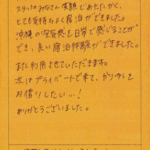 スタッフのみなさん笑顔であたたかく、
とても気持ちよく宿泊ができました。
沖縄の雰囲気も日常で感じることができ
でき、良い宿泊体験ができました。
また利用させていただきます。
次はプライベートで来て、
お借りしたいい!
ありがとうございました。